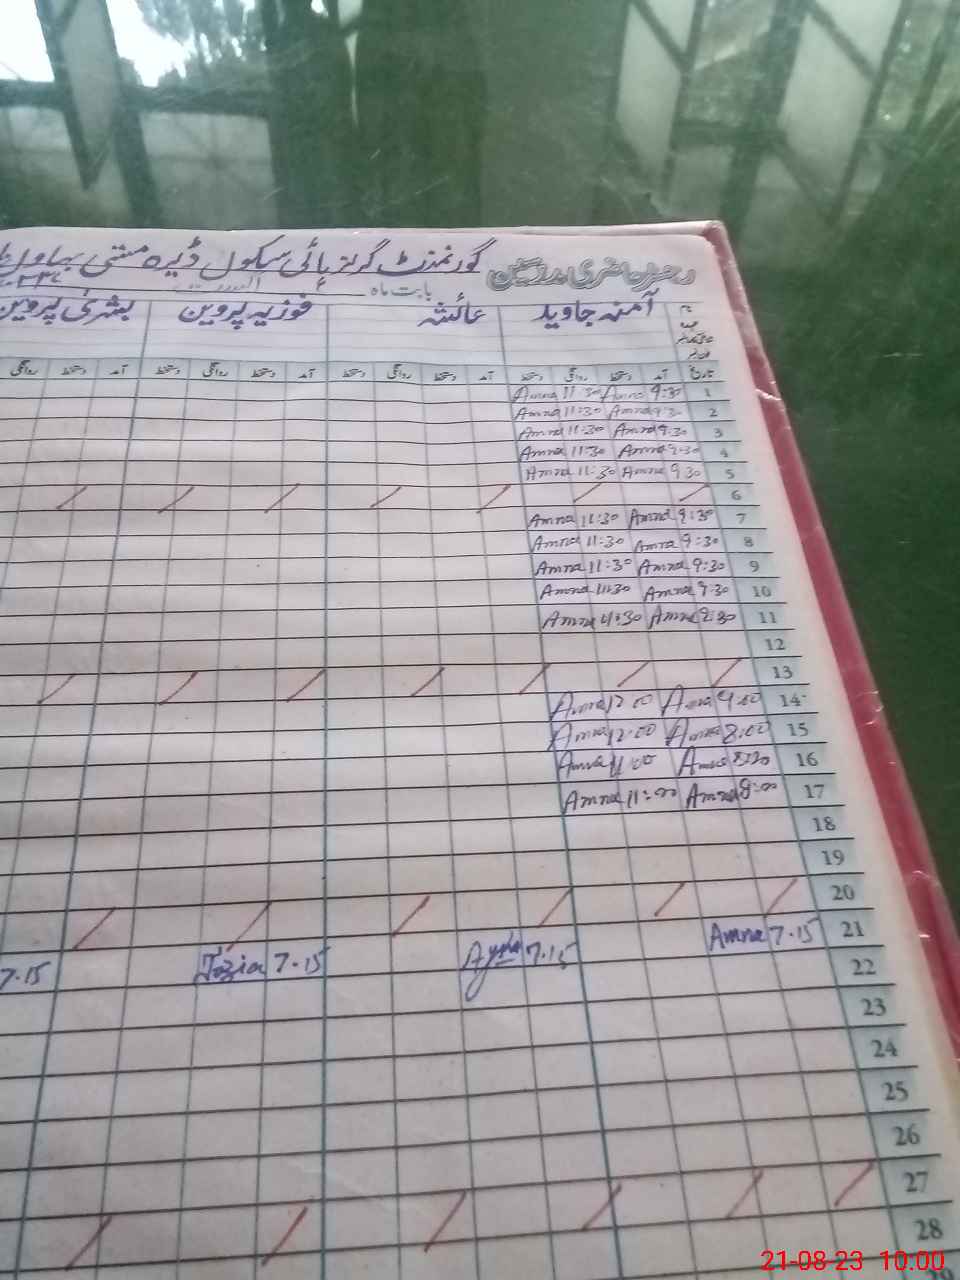 رجسٹر حاضری مدرسین گورنمنٹ گرلز ہائی سکول ڈیرہ
بابت ماہ
نام آمنہ جاوید عائشہ فوزیہ پروین بشریٰ پروین
تاریخ آمد دستخط روانگی دستخط آمد دستخط روانگی دستخط آمد دستخط روانگی دستخط آمد دستخط روانگی
1 9:30 Amna 11:30 Amna
2 9:30 Amna 11:30 Amna
3 9.30 Amna 11:30 Amna
4 9:30 Amna 11:30 Amna
5 9.30 Amna 11:30 Amna
6
7 9:30 Amna 11:30 Amna
8 9:30 Amna 11:30 Amna
9 9:30 Amna 11:30 Amna
10 9.30 Amna 11:30 Amna
11 9:30 Amna 11:30 Amna
12
13
14 Amna 12:00 Amna
15 8:00 Amna 12:00 Amna
16 Amna 11:00 Amna
17 8:00 Amna 11:00 Amna
18
19
20
21 7.15 Amna 7.15 Aysha 7.15 Fozia 7.15
22
23
24
25
26
27
28
29
21-08-23 10:00